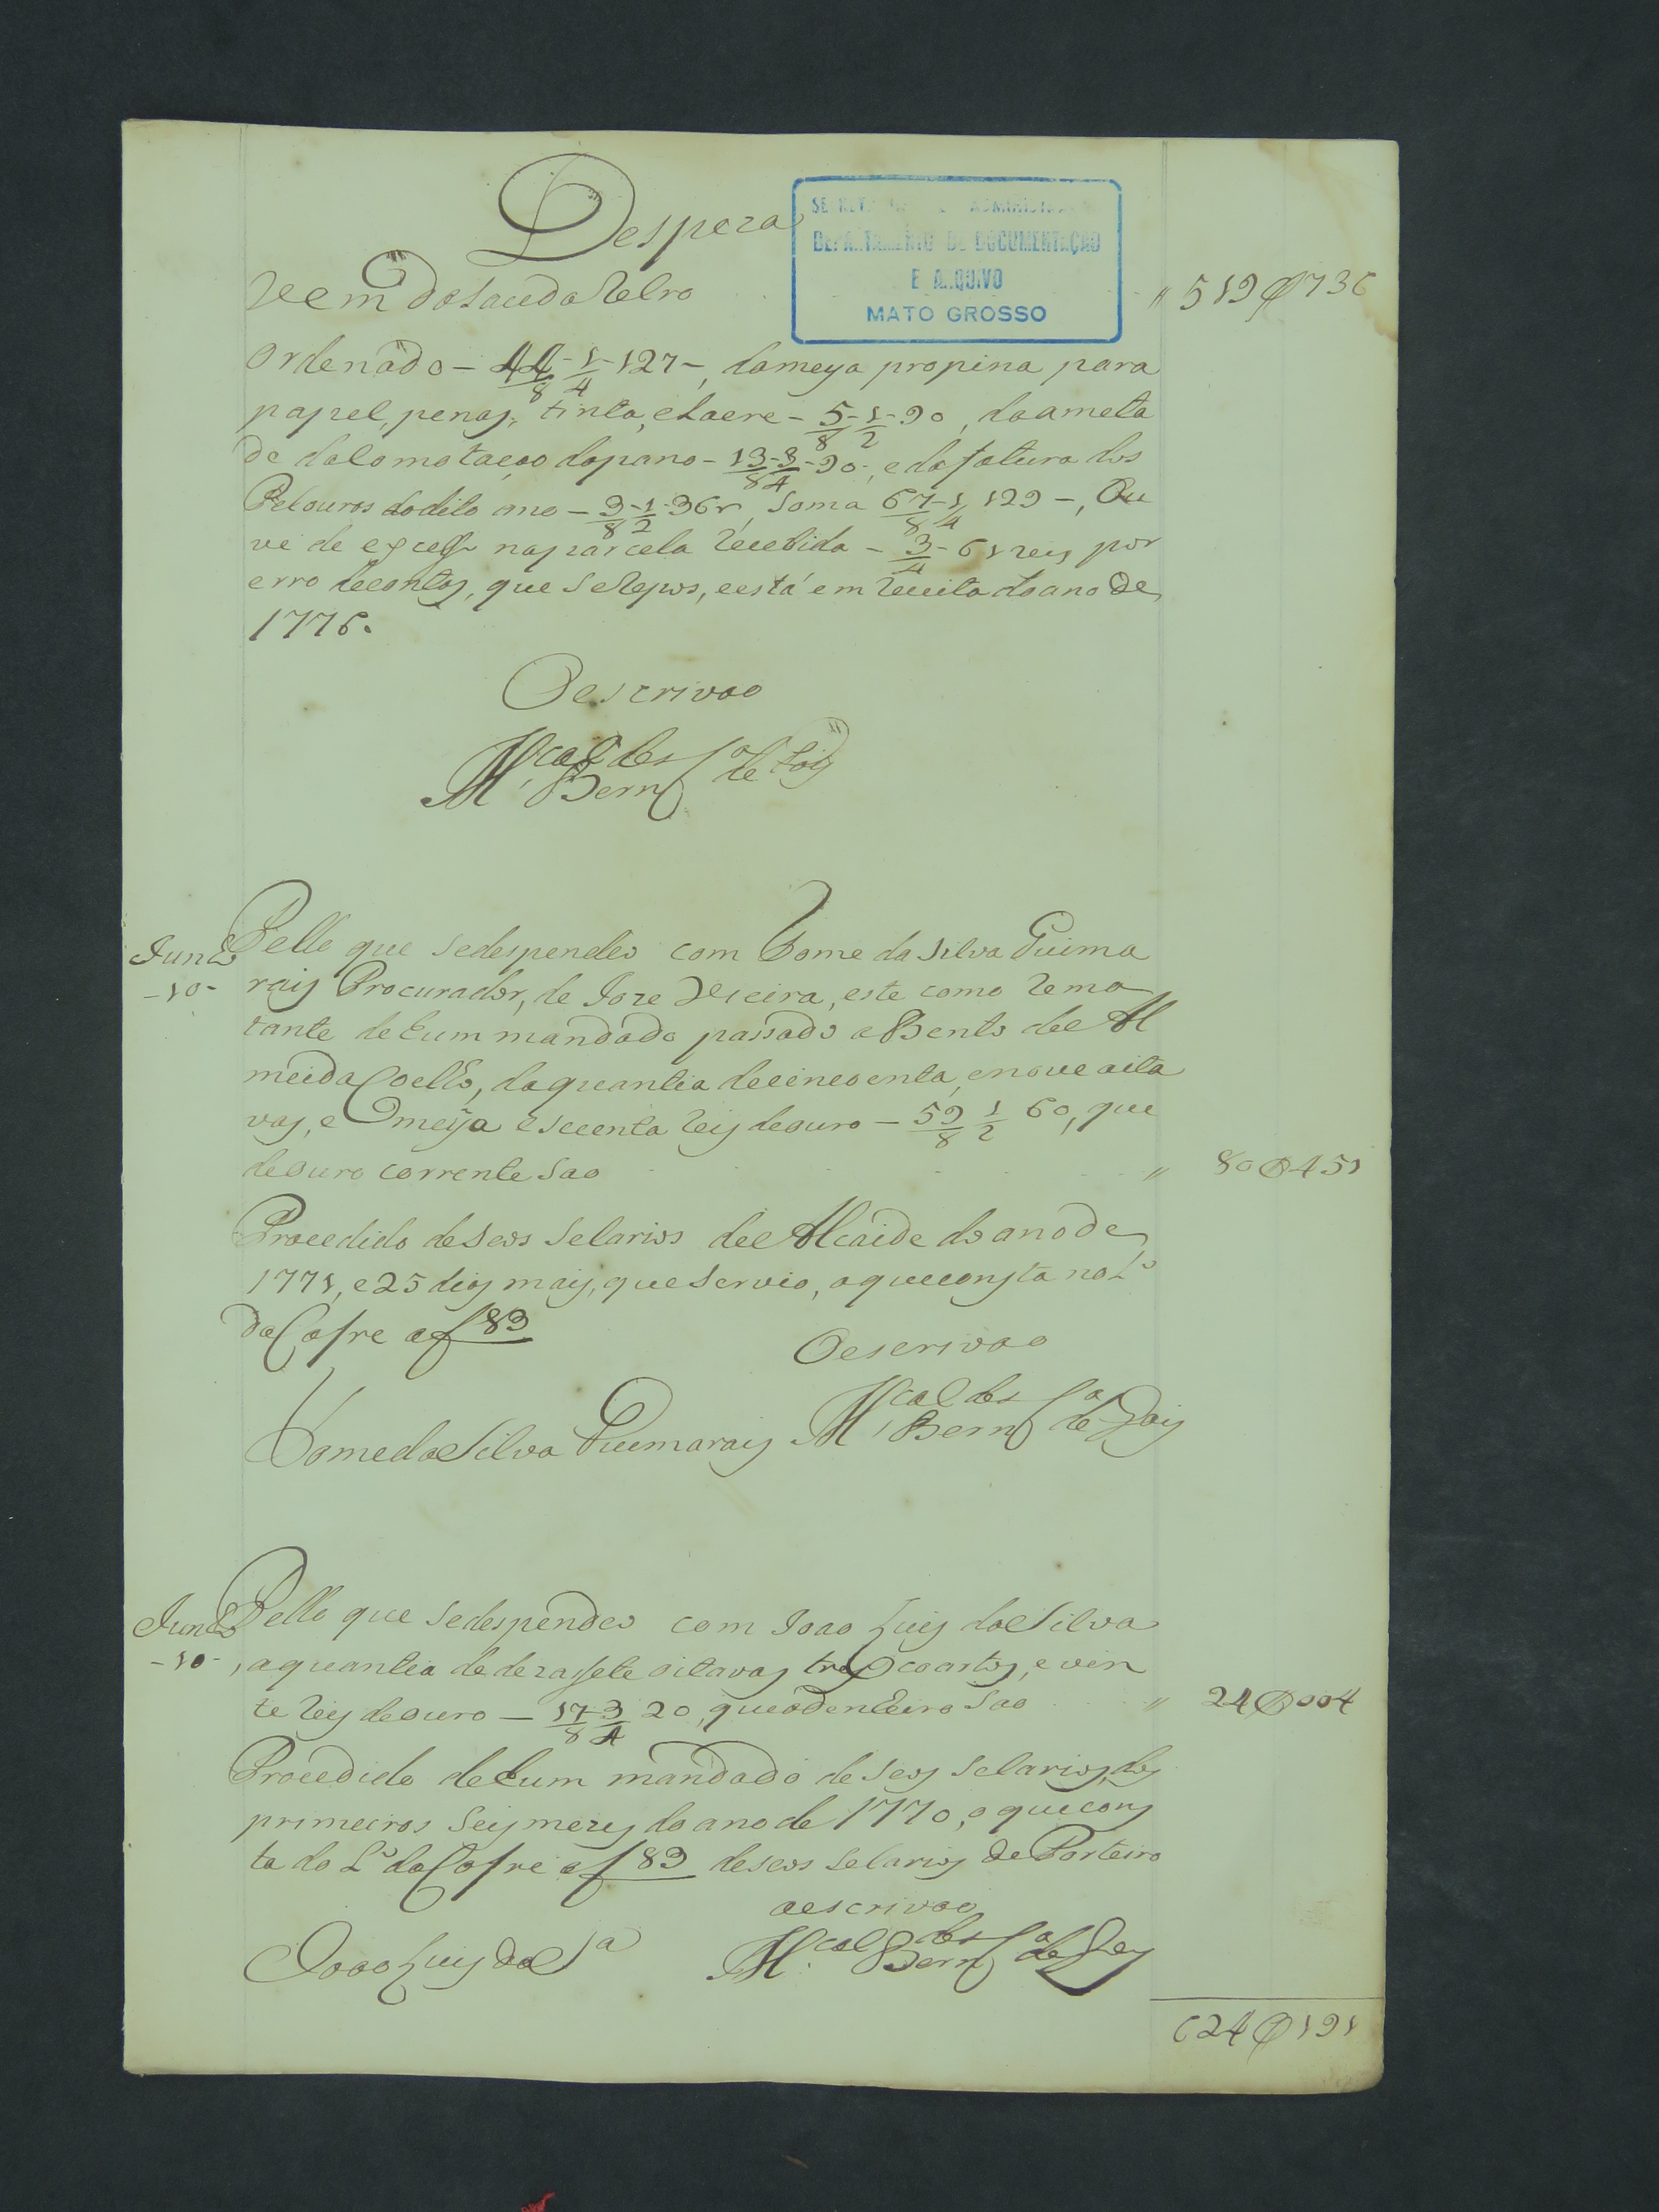 Despeza
SECRETARIA DE ADMINISTRAÇÃO
DEPARTAMENTO DE DOCUMENTAÇÃO
E ARQUIVO
MATO GROSSO
Vem da Lauda Retro " 519$736
Ordenado – 44/8 - 1/4 - 127 –, da meya propina para
papel, penas, tinta, e Lacre – 5/8 - 1/2 - 90, da ameta
de da lomotaçao do pano – 13/8 - 3/4 - 90 –, e da fatura dos
Pelouros do dito ano – 3/8 - 1/2 - 36 r, Soma 67/8 - 1/4 129 –, Ou
ve de exceso na parcela recebida – 3/4 - 61 reis por
erro de contas, que se repos, e está em receita do ano de
1776.
O escrivao
M.el Bern.des S.a de
Junho Pello que se despendeo com Tome da Silva Guima
– 10 – rais Procurador, de Joze Vieira, este como rema
tante de hum mandado passado a Bento de Al
meida Coelho, da quantia de cincoenta, e nove oita
vas, e meya e secenta reis de ouro – 59/8 1/2 60, que
de ouro corrente sao " 80$451
Procedido de seos selarios de Alcaide do ano de
1771, e 25 dias mais, que servio, o que consta no L.o
do Cofre a f 83
O escrivao
Tome da Silva Guimarais M.cal Bern.des S.a de
Junho Pello que se despendeo com Joao Luis da Silva
– 10 – , a quantia de dezassete oitavas tres coartos, e vin
te reis de ouro – 17/8 3/4 20, que a denheiro sao " 24$004
Procedido de hum mandado de seos selarios, dos
primeiros seis mezes do ano de 1770, o que cons
ta do L.o do Cofre a f 83 de seos selarios de Porteiro
O escrivao
Joao Luis da S.a M.cal Bern.des S.a de
624$191